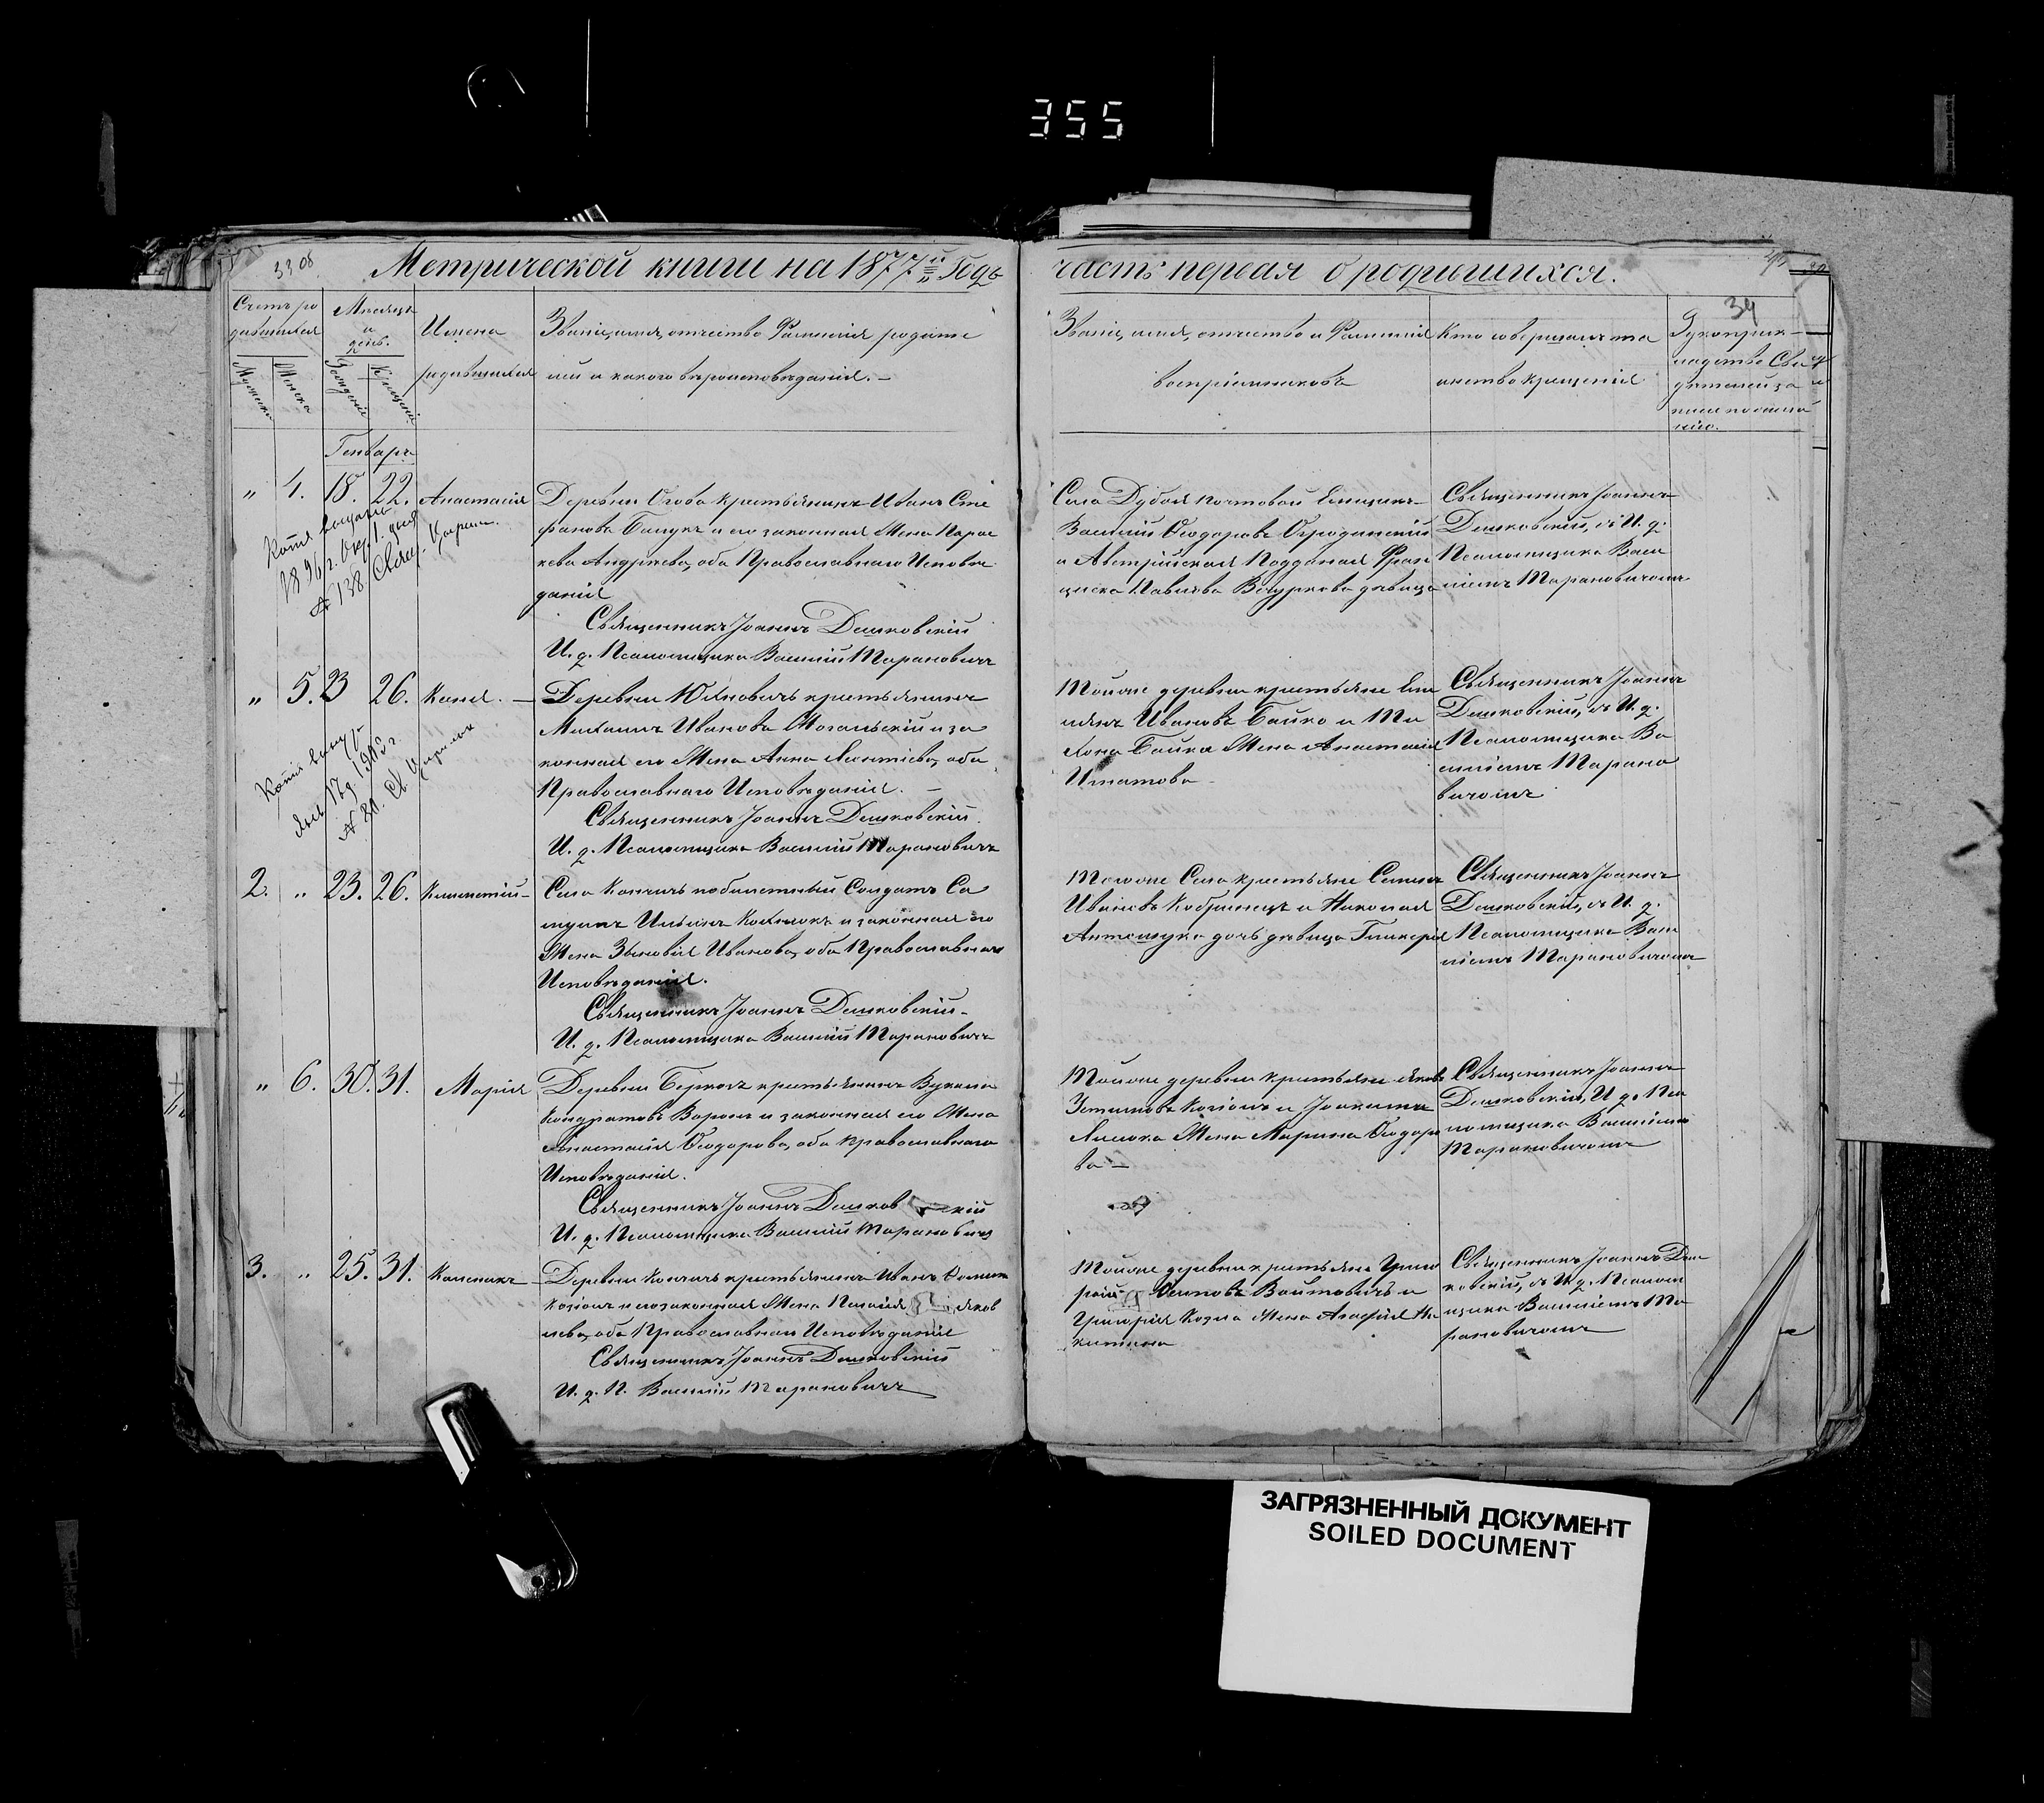 355
3308
Метрической книги на 1877й Годъ
часть первая о родившихся.
34
Счетъ ро
дившихся
Мужеска
Женска
Мѣсяцъ
и
день.
Рожденія
Крещенія
Имена
родившихся
Званіе, имя, отчество Фамилія родите
лей и какого вѣроисповѣданія. —
Званіе, имя, отчество и Фамилія
воспріемниковъ
Кто совершалъ та
инство крещенія
Рукоприк-
ладство Сви
дѣтелей за
писи по жела
нію.
Генварь
" 4. 18. 22. Анастасія
Деревни Огова крестьянинъ Иванъ Сте
фановъ Бащукъ и его законная Жена Парас
кева Андреева, оба Православнаго Исповѣ
данія
Священникъ Іоаннъ Дашковскій
И. д. Псаломщика Василій Тарановичъ
Села Дубоя почтовой
Василій Ѳеодоровъ Огродинскій
и Австрійская Подданая Фран
циска Павлова девица
Священникъ Іоаннъ
Дашковскій, съ И. д.
Псаломщика Васи
ліемъ Тарановичемъ
Копія выдана
1896 г. Окт. 1. дня
№ 138 Свящ.
" 5. 23 26. Ксенія. —
Деревни Юхновичъ крестьянинъ
Михаилъ Ивановъ Могальскій и за
конная его Жена Анна Леонтіева, оба
Православнаго Исповѣданія. —
Священникъ Іоаннъ Дашковскій.
И. д. Псаломщика Василій Тарановичъ
Тойже деревни крестьяне
Ивановъ Бойко и
Бойка Жена Анастасія
Игнатова
Священникъ Іоаннъ
Дашковскій, съ И. д.
Псаломщика Ва
силіемъ Тарано
вичемъ
Копія выда
1905 г.
2. " 23. 26. Климентій —
Села Кончичъ побилетный Солдатъ Са
муилъ Ильинъ Колбюкъ и законная его
Жена Зѣновія Иванова, оба Православнаго
Исповѣданія.
Священникъ Іоаннъ Дашковскій —
И. д. Псаломщика Василій Тарановичъ
Тогоже Села крестьяне Семенъ
Ивановъ Кобринецъ и Николая
Антонщука дочь дѣвица Гликерія
Священникъ Іоаннъ
Дашковскій, съ И. д.
Псаломщика Васи
ліемъ Тарановичемъ
" 6. 30. 31. Марія
Деревни крестьянинъ Вукола
Кондратовъ Воронъ и законная его Жена
Анастасія Ѳеодорова, оба Православнаго
Исповѣданія.
Священникъ Іоаннъ Дашков скій
И. д. Псаломщика Василій Тарановичъ
Тойже деревни крестьяне Яковъ
Устиновъ Козіонъ и Іоакима
Жена Марина Ѳеодоро
ва —
Священникъ Іоаннъ
Дашковскій, И. д. Пса
ломщика Василіемъ
Тарановичемъ
3. " 25. 31. Калиникъ
Деревни Кончичъ крестьянинъ Иванъ Ѳомин
Козіонъ и его законная Жена Пелагія Яков
лева, оба Православнаго Исповѣданія
Священникъ Іоаннъ Дашковскій
И. д. П. Василій Тарановичъ
Тойже деревни крестьяне Григо
рій Осиповъ Войтовичъ и
Григорія Козла Жена Агафія Ни
китина
Священникъ Іоаннъ Даш
ковскій, съ И. д. Псалом
щика Василіемъ Та
рановичемъ
ЗАГРЯЗНЕННЫЙ ДОКУМЕНТ
SOILED DOCUMENT